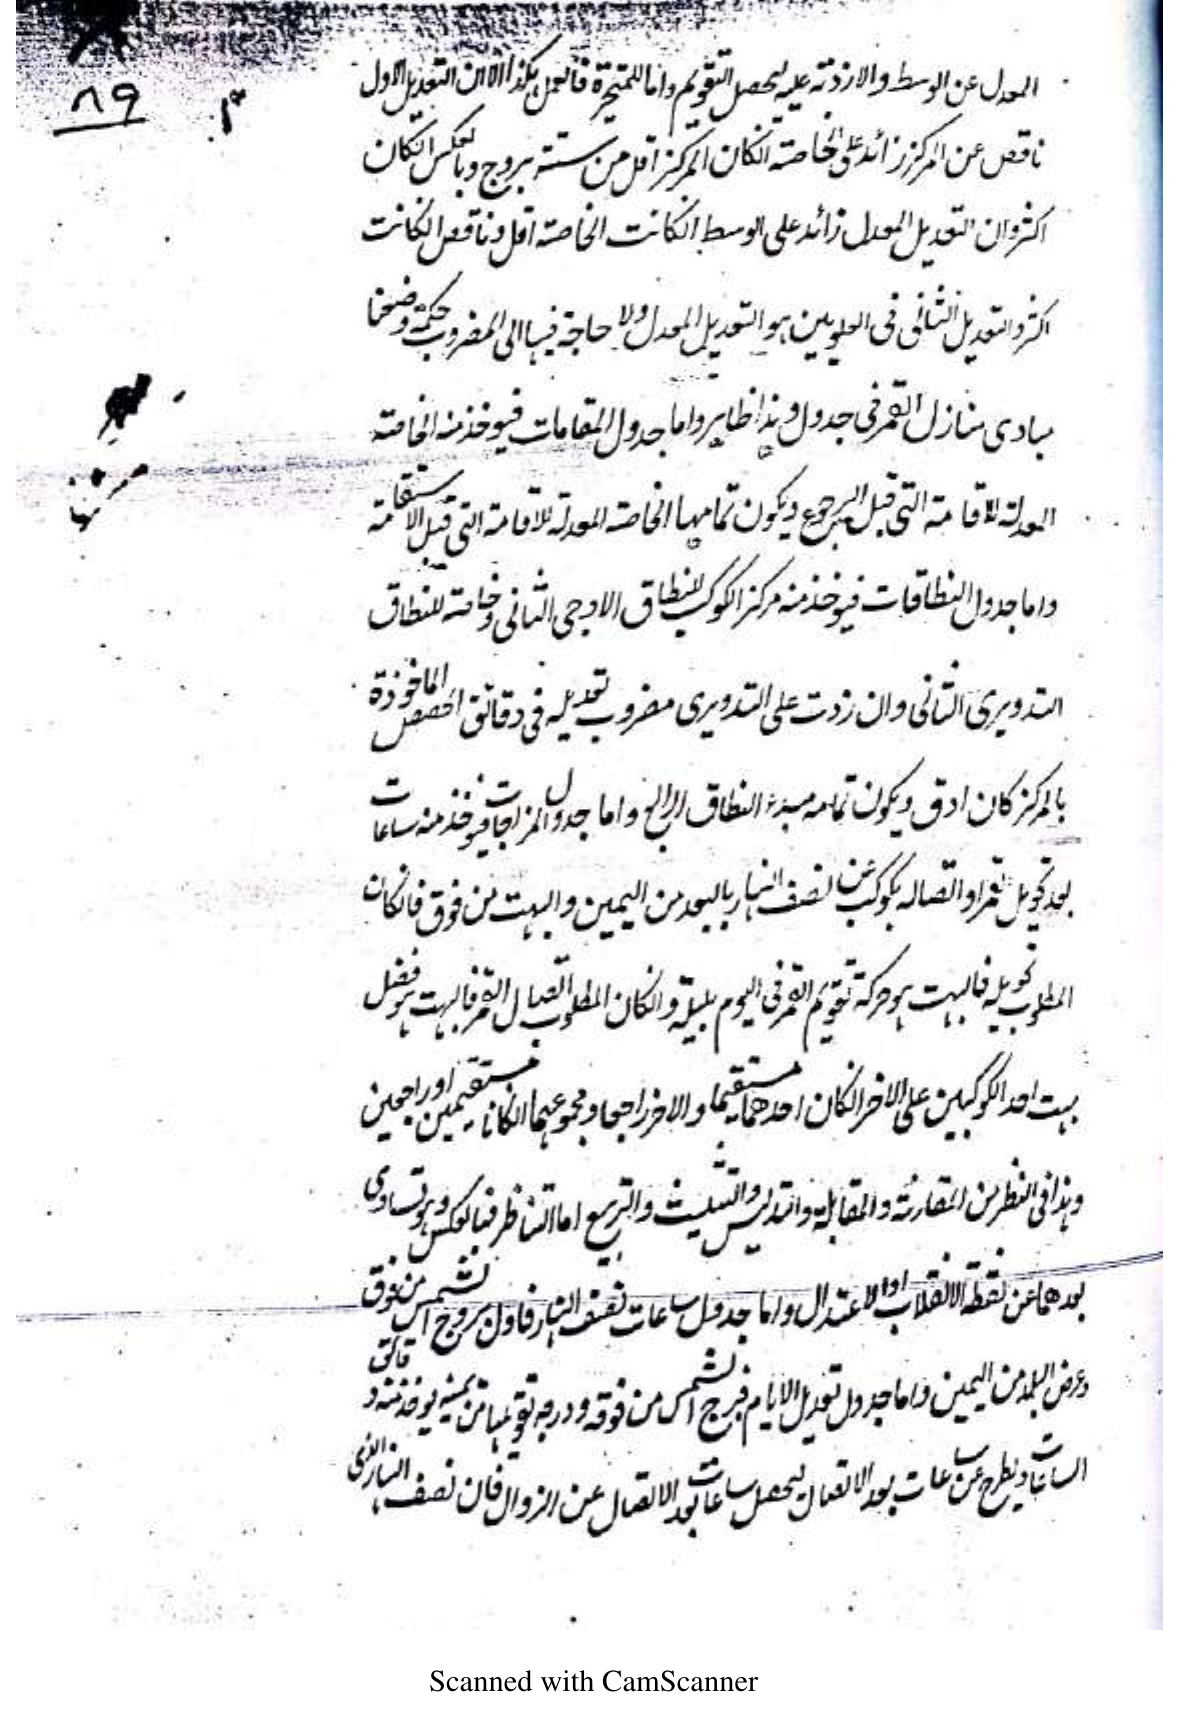 ٨٩
المعدل عن الوسط والا زدته عليه ليحصل التقويم واما المتحيرة فالعمل هكذا الا ان التعديل الاول
ناقص عن المركز زائد على الخاصة انكان المركز اقل من ستة بروج وبالعكس انكان
اكثر وان التعديل المعدل زائد على الوسط انكانت الخاصة اقل وناقص انكانت
اكثر والتعديل الثانى فى العلويين هو التعديل المعدل ولا حاجة فيها الى المضروب حكمة وضعنا
مبادى منازل القمر فى جدول وهذا ظاهر واما جدول المقامات فيوخذ منه الخاصة
المعدلة للاقامة التى قبل الرجوع ويكون تمامها الخاصة المعدلة للاقامة التى قبل الاستقامة
واما جدول النطاقات فيوخذ منه مركز الكوكب للنطاق الاوجى الثانى وخاصة للنطاق
التدويرى الثانى وان زدت على التدويرى مضروب تعديله فى دقائق الحصص الماخوذة
بالمركز كان ادق ويكون تمامه مبدء النطاق الرابع واما جدول المزاجات فيوخذ منه ساعات
بعد تحويل القمر او اتصاله بكوكب عن نصف النهار بالبعد من اليمين والبهت من فوق فانكان
المطلوب تحويله فالبهت هو حركة تقويم القمر فى اليوم بليلة وانكان المطلوب اتصال القمر فالبهت هو فضل
بهت احد الكوكبين على الاخر انكان احدهما مستقيما والاخر راجعا ومجموعهما انكانا مستقيمين او راجعين
وهذا فى النظر من المقارنة والمقابلة والتسديس والتثليث والتربيع اما التناظر فبالعكس وهو تساوى
بعدهما عن نقطة الانقلاب او الاعتدال واما جدول ساعات نصف النهار فاول بروج الشمس من فوق
وعرض البلد من اليمين واما جدول تعديل الايام فبرج الشمس من فوقه ودرجة تقويمها من يمينه يوخذ منه دقائق
الساعات ويطرح عن ساعات بعد الاتصال ليحصل ساعات بعد الاتصال عن الزوال فان نصف النهار الذى
Scanned with CamScanner